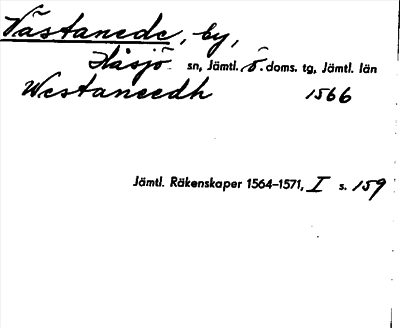 Västanede, by,
Håsjö sn, Jämtl. ö. doms. tg, Jämtl. län
Westaneedh 1566
Jämtl. Räkenskaper 1564–1571, I s. 159